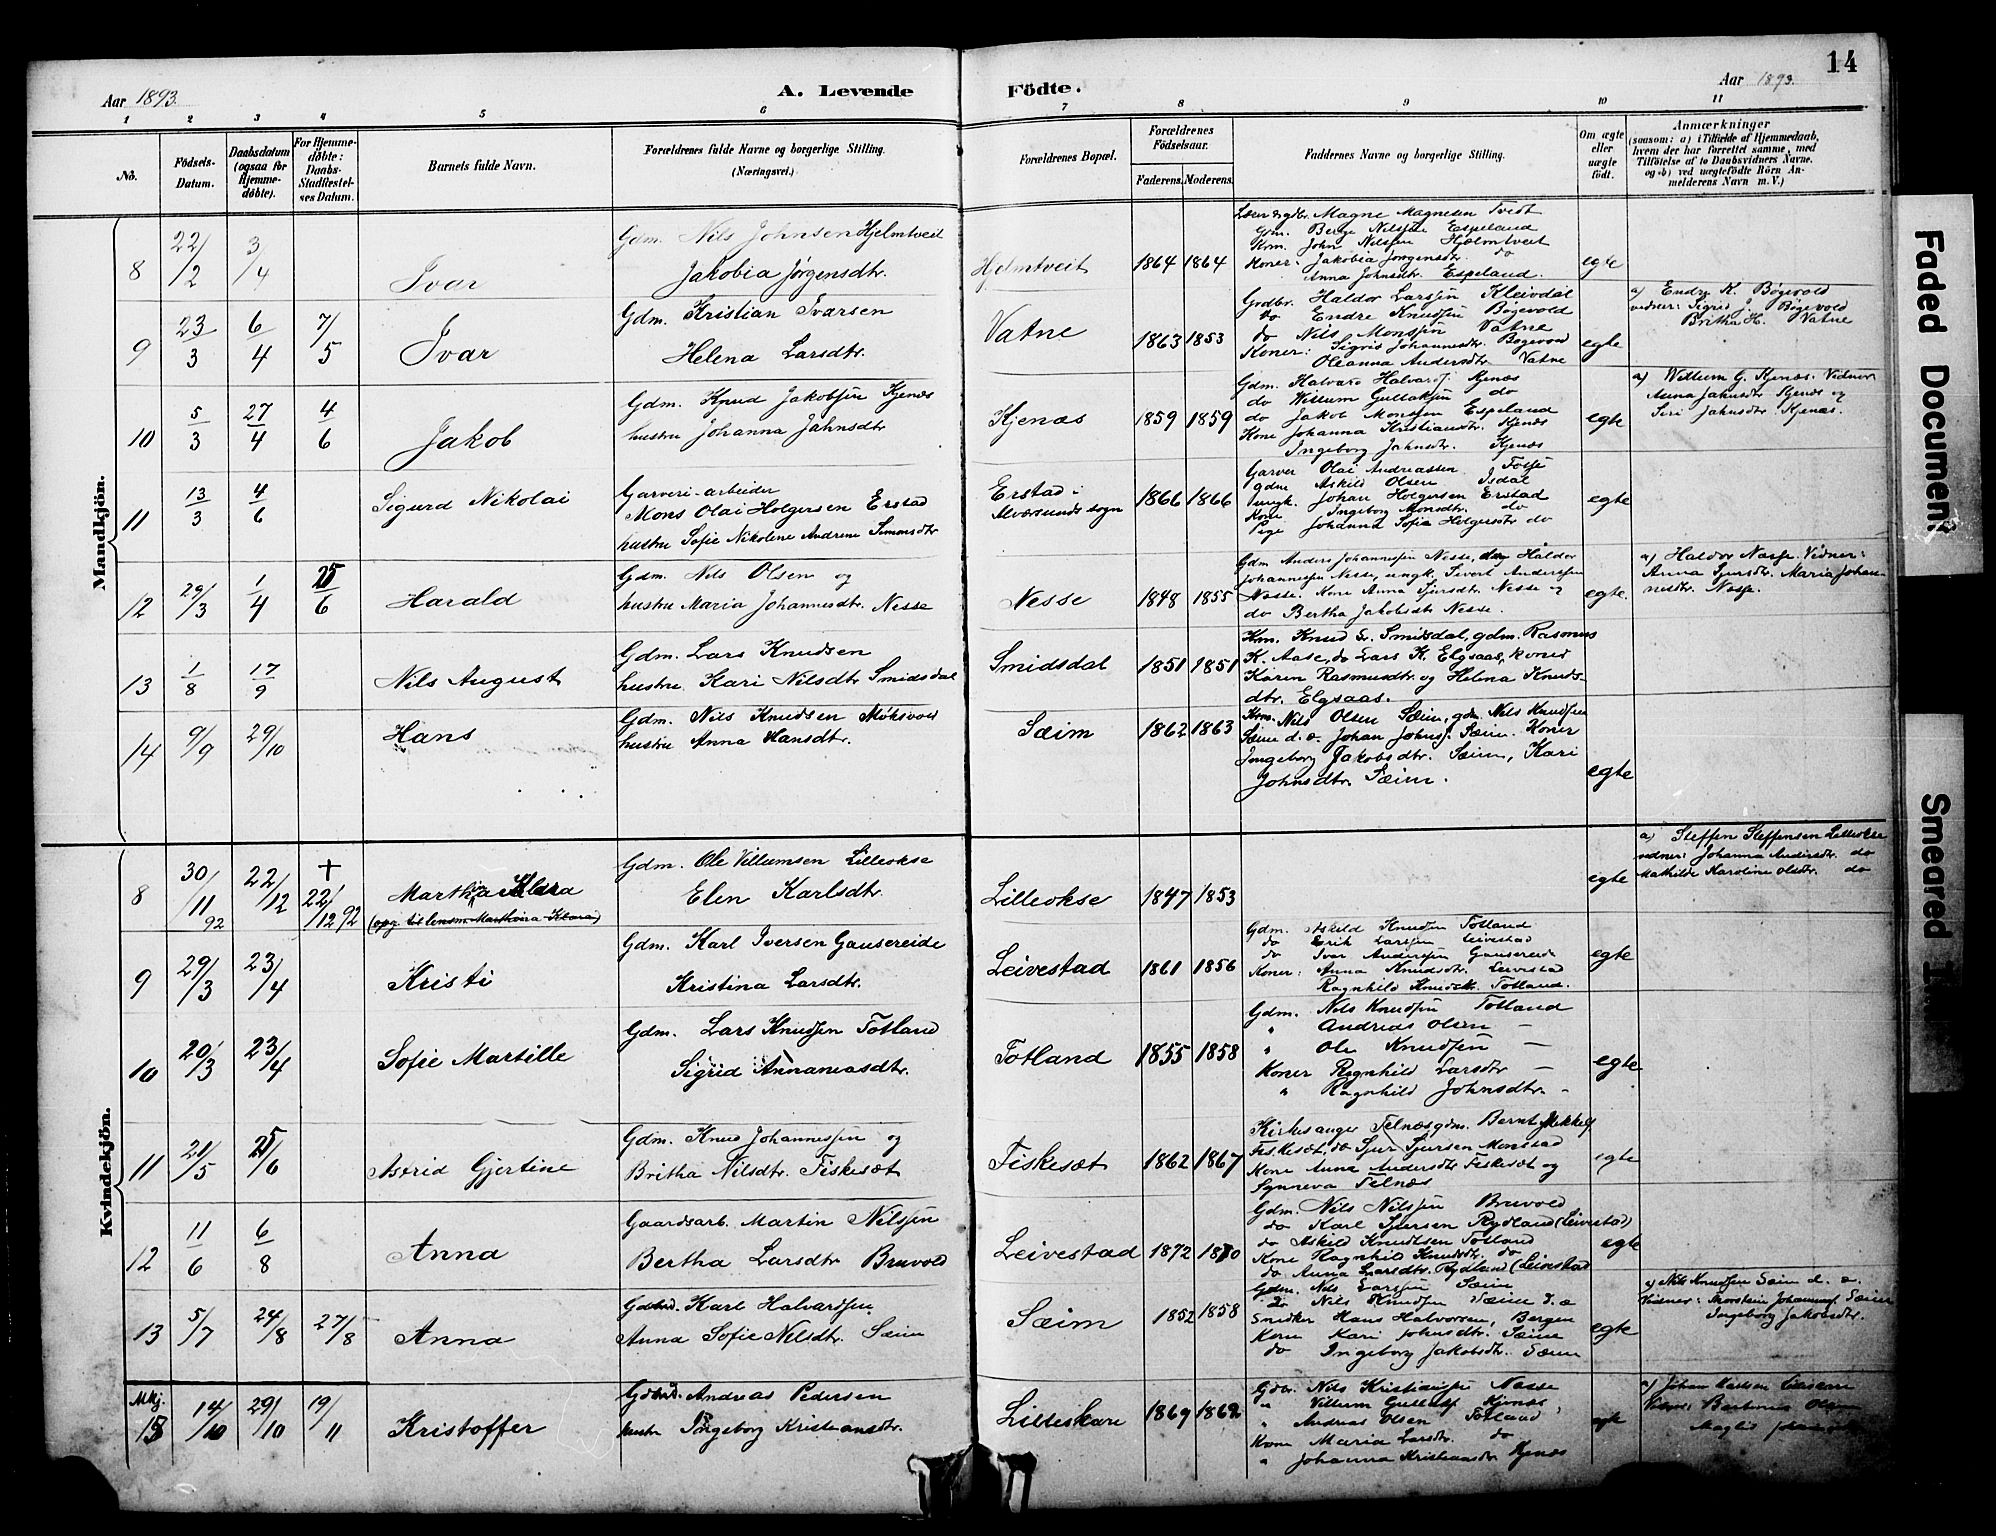 14
Aar 1893.
A. Levende Födte.
Aar 1893.
1 2 3 4 5 6 7 8 9 10 11
No.
Födsels-Datum.
Daabsdatum (ogsaa for Hjemme-döbte).
For Hjemme-döbte: Daabs-Stadfæstel-ses Datum.
Barnets fulde Navn.
Forældrenes fulde Navne og borgerlige Stilling.
(Næringsvei.)
Forældrenes Bopæl.
Forældrenes Födselsaar.
Faderens. Moderens.
Faddernes Navne og borgerlige Stilling.
Om ægte eller uægte födt.
Anmærkninger
(saasom: a) i Tilfælde af Hjemmedaab,
hvem der har forrettet samme, med
Tilföielse af to Daabsvidners Navne.
og b) ved uægtefödte Börn An-
melderens Navn m. V.)
Mandkjön.
8 22/2 3/4 Ivar
Gdm. Nils Johnsen Hjelmtveit
Jakobia Jørgensdtr.
Hjelmtveit 1864 1864
Magne Magnesen Tvedt
Gm. Berge Nilssen Espeland
Krm. John Nilssen Hjelmtveit
Koner: Jakobia Jørgensdtr. do
Anna Johnsdtr. Espeland.
egte
9 23/3 6/4 7/5 Ivar
Gdm. Kristian Ivarsen
Helena Larsdtr.
Vatne 1863 1853
Grdbr. Haldor Larssen Kleivdal
do Endre Knudssen Bøgevold
do Nils Monssen Vatne
Koner: Sigrid Johannesdtr. Bøgevold
Oleanna Andersdtr. Vatne
egte
a) Endre K. Bøgevold
vidner: Sigrid J. Bøgevold
Britha H. Vatne
10 5/3 27/4 4/6 Jakob
Gdm. Knud Jakobssen Kjenæs
hustru Johanna Jahnsdtr
Kjenæs 1859 1859
Gdm. Halvard Halvards. Kjenæs
do Willum Gullaksen do
do Jakob Monssen Espeland
Kone Johanna Kristiansdtr. Kjenæs
Ingeborg Jahnsdtr. Kjenæs
egte
a) Willum G. Kjenæs. Vidner
Anna Jahnsdtr. Kjenæs og
Siri Jahnsdtr. Kjenæs.
11 13/3 4/6 Sigurd Nikolai
Garveri-arbeider
Mons Olai Holgersen Erstad
hustru Sofie Nikolene Andrine Simonsdtr
Erstad i
Alversunds sogn
1866 1866
Garver Olai Andreassen Fosse
gdm Askild Olsen Isdal
ungk. Johan Holgersen Erstad
Kone Ingeborg Monsdtr. do
Pige Johanna Sofie Holgersdtr do
egte
12 29/3 1/4 25/6 Harald
Gdm. Nils Olsen og
hustru Maria Johannesdtr. Nesse
Nesse 1848 1855
Gdm Anders Johannessen Nesse, Haldor
Johannessen Nesse, ungk. Sivert Anderssen
Nesse. Kone Anna Sjursdtr. Nesse og
do Bertha Jakobsdtr Nesse.
egte.
a) Haldor Nesse. Vidner:
Anna Sjursdtr. Maria Johan-
nesdtr. Nesse.
13 1/8 17/9 Nils August
Gdm. Lars Knudsen
hustru Kari Nilsdtr Smidsdal
Smidsdal 1851 1851
Krm. Knud Smidsdal, gdm. Rasmus
K. Aase, do Lars K. Elgsaas, koner
Karen Rasmusdtr. og Helena Knuds-
dtr. Elgsaas.
14 9/9 29/10 Hans
Gdm. Nils Knudsen Møksvold
hustru Anna Hansdtr.
Sæim 1862 1863
Krm. Nils Olsen Sæim, gdm. Nils Knudsen
Sæim d. æ. Johan Johns. Sæim. Koner
Ingeborg Jakobsdtr. Sæim, Kari
Johnsdtr. Sæim.
egte
Kvindekjön.
8 30/11 92 22/12 † 22/12 92
Klara
Gdm. Ole Villumsen Lilleokse
Elen Karlsdtr.
Lilleokse 1847 1853
egte
a) Steffen Steffensen Lilleokse
vidner: Johanna Andersdtr. do
Mathilde Karoline Olsdtr. do
9 29/3 23/4 Kristi
Gdm. Karl Iversen Gausereide
Kristina Larsdtr.
Leivestad 1861 1856
Gdm. Askild Knudsen Totland
do Erik Larssen Leivestad
do Ivar Anderssen Gausereide
Koner: Anna Knudsdtr. Leivestad
Ragnhild Knudsdtr. Totland.
egte
10 20/3 23/4 Sofie Martille
Gdm. Lars Knudsen Totland
Sigrid Annaniasdtr.
Totland 1855 1858
Gdm. Nils Knudssen Totland
" Andreas Olsen —
" Ole Knudssen —
Koner Ragnhild Larsdtr —
" Ragnhild Johnsdtr. -
egte
11 21/5 25/6 Astrid Gjertine
Gdm. Knud Johannessen og
Britha Nilsdtr. Fiskesæt
Fiskesæt 1862 1867
Kirkesanger Felnæs gdm. Bernt Mikkels
Fiskesæt, do Sjur Sjursen Monstad
Kone Anna Andersdtr Fiskesæt og
Synneva Felnæs
egte
12 11/6 6/8 Anna
Gaardsarb. Martin Nilssen
Bertha Larsdtr Bruvold
Leivestad 1872 1870
Gdm. Nils Nilssen Bruvold
do Karl Sjursen Rydland (Leivestad)
do Askild Knudtsen Totland
Kone Ragnhild Knudsdtr. do
do Anna Larsdtr. Rydland (Leivestad
egte
13 5/7 24/8 27/8 Anna
Karl Halvardsen
Anna Sofie Nilsdtr. Sæim
Sæim 1852 1858
Gdm. Nils Larssen Sæim
do Nils Knudssen Sæim d. æ
Snedker Hans Halvorsen, Bergen
Kone Kari Johnsdtr. Sæim
do Ingeborg Jakobsdtr. Sæim
egte
a) Nils Knudssen Sæim d. æ.
Vidner: Thorstein Johannes. Sæim
Ingeborg Jakobsdtr.
Mkj.
15 14/10 29/10 19/11 Kristoffer
Andreas Pedersen
hustru Ingeborg Kristiansdtr.
Lilleskare 1869 1862
Gdbr. Nils Kristianssen Nesse
" Villum Gullaks. Kjenæs,
" Andreas Olsen Totland
Kone Maria Larsdtr. do
" Johanna Kristiansdtr Kjenæs
egte
a) Johan
Vidner:
Faded Document
Smeared